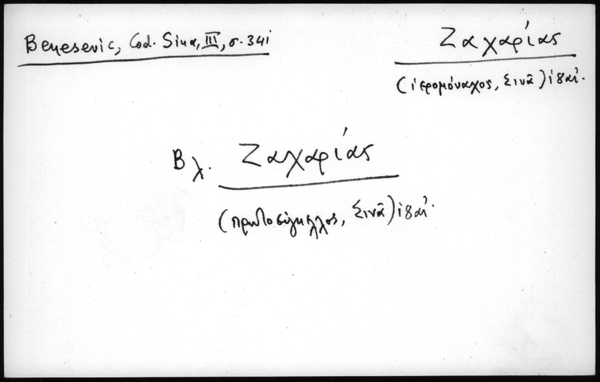 Benesevic, Cod. Sina, III, σ. 341
Ζαχαρίας
(ἱερομόναχος, Σινᾶ) ις αἰ.
Βλ. Ζαχαρίας
(πρωτοσύγκελλος, Σινᾶ) ις αἰ.